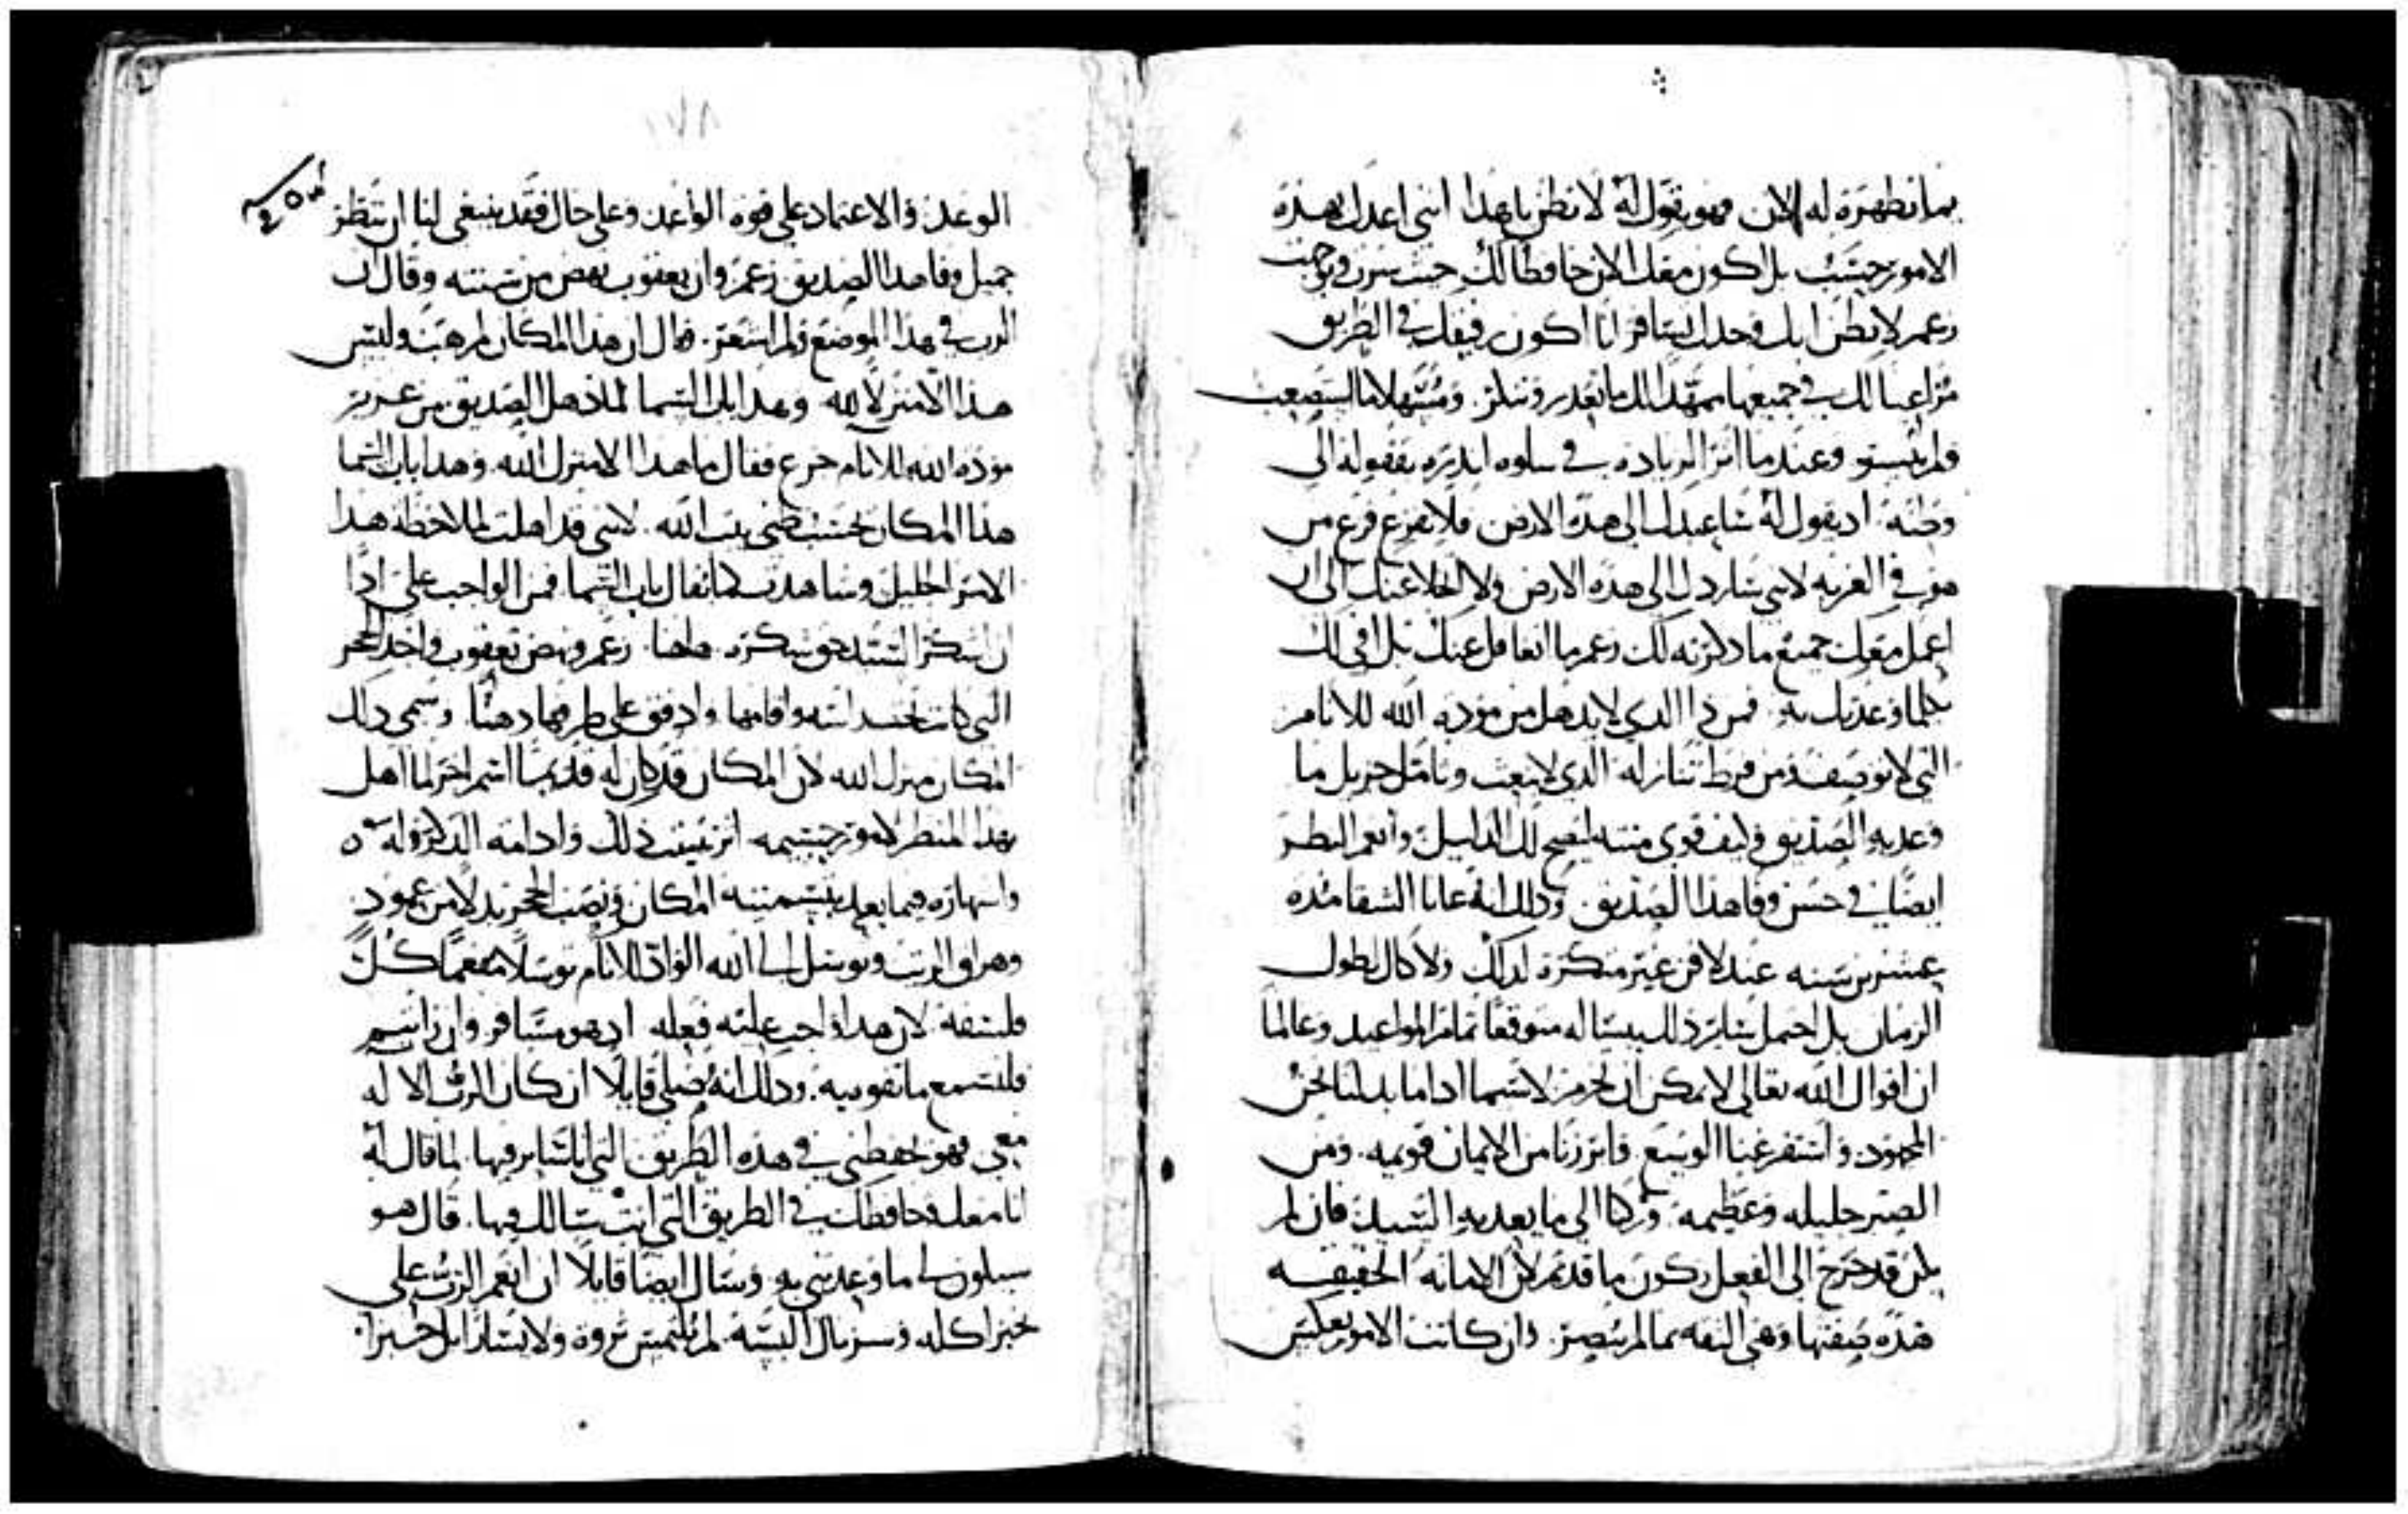 بما نظهره له الان فهو يقول له لا تظن يا هذا انني اعدك بهذه
الامور حسب بل اكون معك الان حافظا لك حيث سرت وتوجهت
زعم لا تظن انك وحدك تسافر انا اكون رفيقك في الطريق
مراعيا لك في جميعها ممهدا لك ما تعذر ومسهلا ما استصعب
وعندما اثر الزياده في سلوه ابتدره بقفوله الى
وطنه اذ يقول له ساعيدك الى هذه الارض فلا تفزع فزع من
هو في الغربه لاني ساردك الى هذه الارض ولا اتخلا عنك الى ان
اعمل معك جميع ما ذكرته لك زعم ما اتغافل عنك بل افي لك
بكلما وعدتك به فمن ذا الذي لا يذهل من موده الله للانام
التي لا توصف ومن فرط تنازله الذي لا ينعت وتامل جزيل ما
وعد به الصديق وكيف قوى منته ليضح لك الدليل وانعم النظر
ايضا في حسن وفا هذا الصديق وذلك انه عانا الشقا مده
عشرين سنه عند لافن غير متكره لذلك ولا كال لطول
الزمان بل احتمل ساير ذلك ببساله متوقعا تمام المواعيد وعالما
ان اقوال الله تعالى لا يمكن ان تخرم لا سيما اذا ما بذلنا نحن
المجهود واستفرغنا الوسع فابرزنا من الايمان قويمه ومن
الصبر جليله وعظيمه وركنا الى ما يعد به السيد فان لم
يكن قد خرج الى الفعل ركون ما قد تم لان الامانه الحقيقيه
هذه صفتها وهي الثقه بما لم يبصر وان كانت الامور بعكس
الوعد والاعتماد على قوه الواعد وعلى حال فقد ينبغي لنا ان ننظر
جميل وفا هذا الصديق زعم وان يعقوب نهض من سنته وقال ان
الرب في هذا الموضع ولم اشعر فقال ان هذا المكان لمرهب وليس
هذا الا منزل الله وهذا باب السما لما ذهل الصديق من عزيز
موده الله للانام جزع فقال ما هذا الا منزل الله وهذا باب السما
هذا المكان بحسب ظني بيت الله لانني قد اهلت لملاحظه هذا
الامر الجليل وشاهدت كما يقال باب السما فمن الواجب علي اذا
ان اشكر السيد حق شكره زعم ونهض يعقوب واخذ الحجر
التي كانت تحت راسه واقامها وادفق على طرفها دهنا وسمى ذلك
المكان منزل الله لان المكان قد كان له قديما اسم اخر لما اهل
بهذا المنظر لامور جسيمه اثر تثبيت ذلك وادامه الذكر له
واشهاره فيما بعد بتسميته المكان ونصب الحجر بدلا من عمود
وهراق الزيت وتوسل الى الله الواد للانام توسلا مفعما كل
فلسفه لان هذا واجب عليه فعله اذ هو مسافر وان
فلنسمع ما تفوه به وذلك انه صلى قايلا ان كان الرب الاله
معي فهو يحفظني في هذه الطريق التي انا ساير فيها لما قال له
انا معك وحافظك في الطريق التي انت سالك فيها قال هو
سيكون لي ما وعدتني به وسال ايضا قايلا ان انعم الرب علي
خبزا اكله وسربال البسه لم يلتمس ثروه ولا يسارا بل خبزا